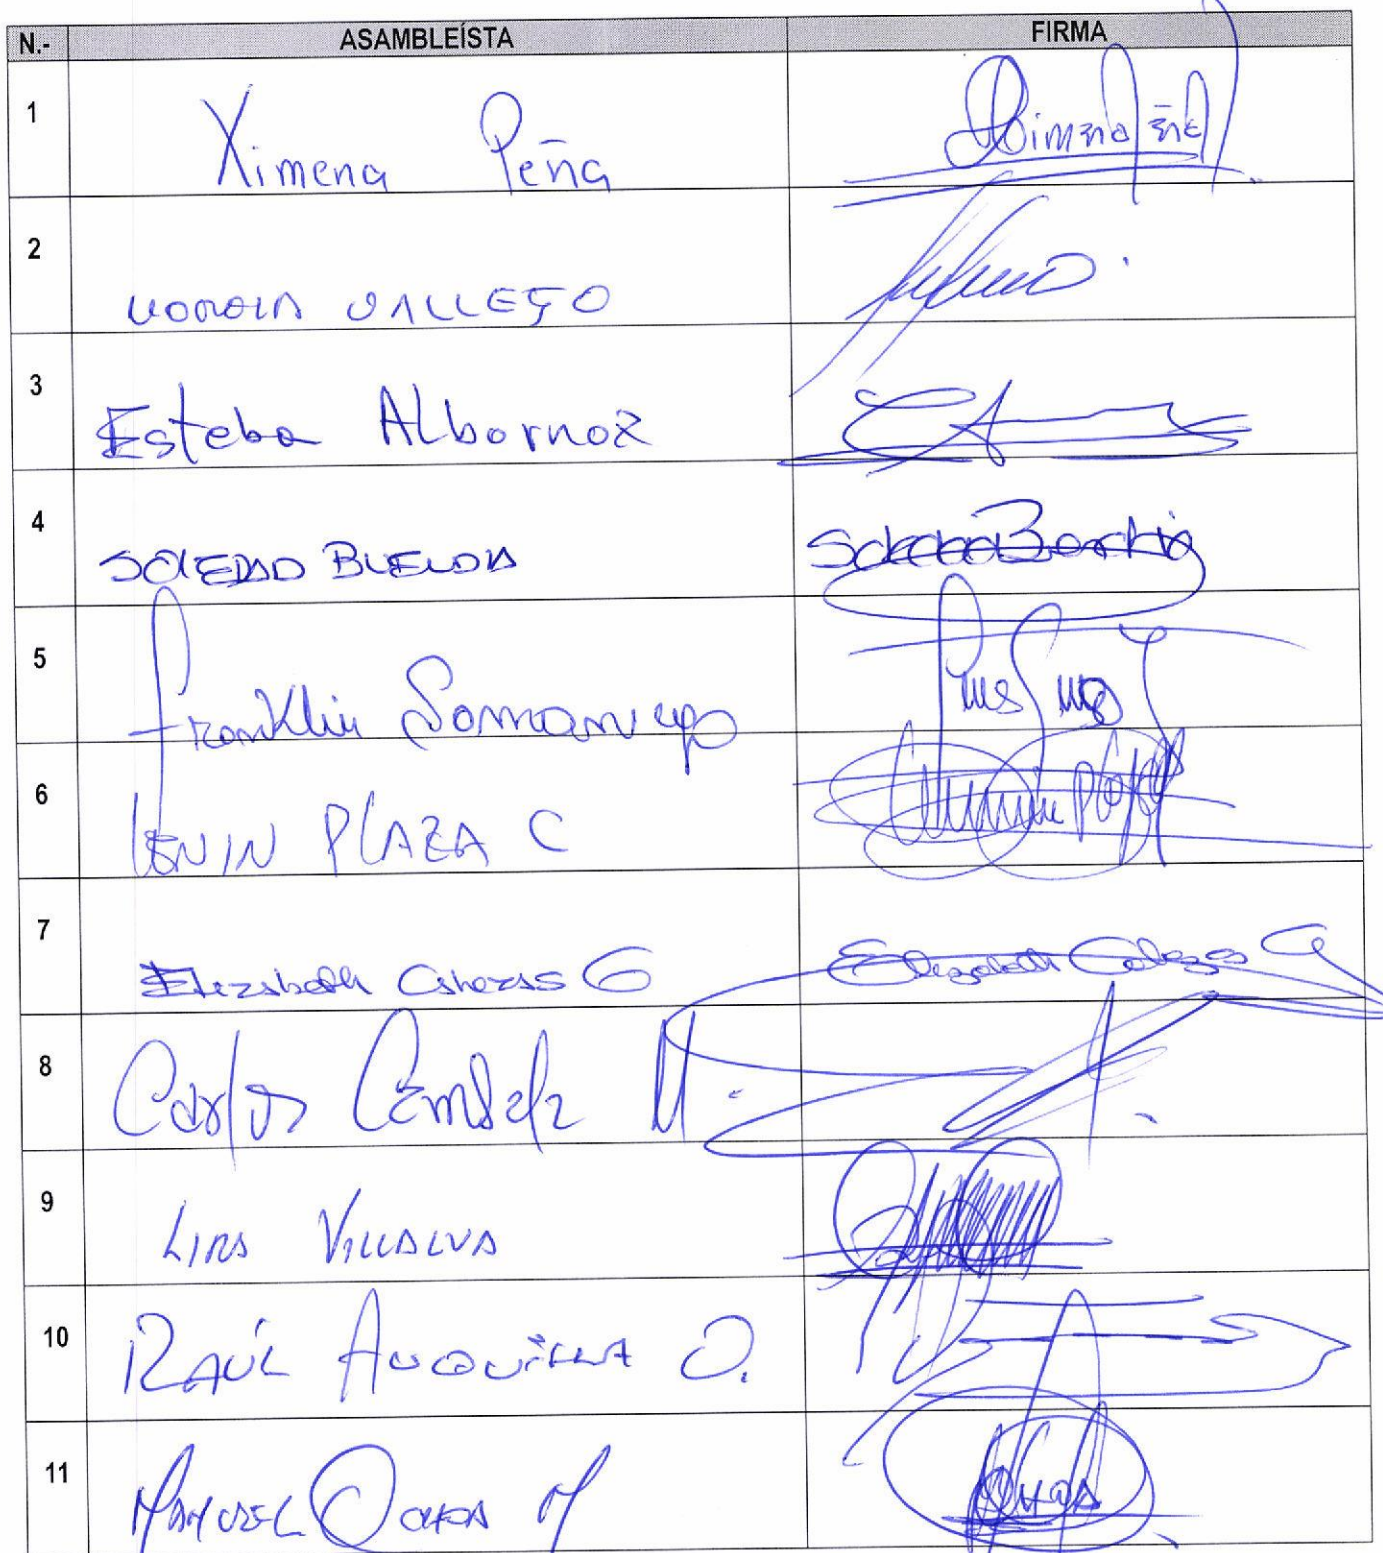 N.- ASAMBLEÍSTA FIRMA
1 Ximena Peña Ximena Peña
2 VALLEJO
3 Esteba Albornoz
4 SOLEDAD BUENDIA Soledad Buendia
5 Franklin Samaniego
6 LENIN PLAZA C Lenin Plaza
7 Elizabeth Cabezas G Elizabeth Cabezas G
8 Carlos M.
9 LIRA VILLALVA
10 RAÚL AUQUILLA O.
11 MANUEL OCHOA M OCHOA